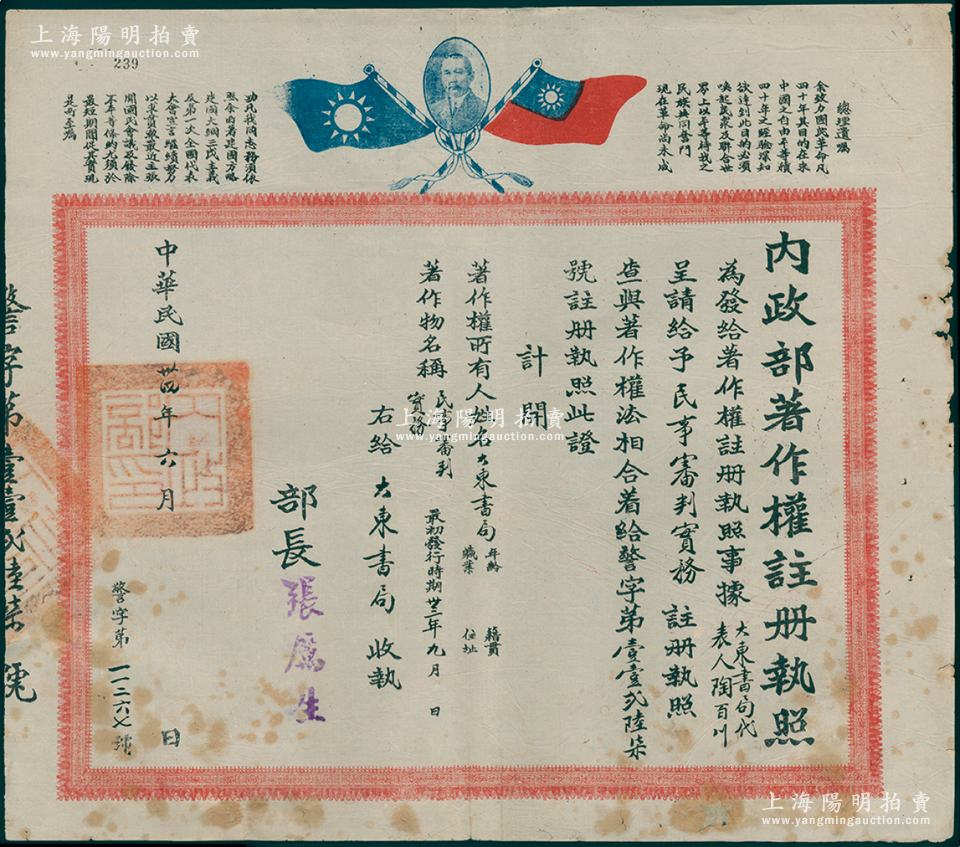 上海陽明拍賣
www.yangmingauction.com
239
總理遺囑
余致力國民革命凡
四十年其目的在求
中國之自由平等積
四十年之經驗深知
欲達到此目的必須
喚起民衆及聯合世
界上以平等待我之
民族共同奮鬥
現在革命尚未成
功凡我同志務須依
照余所著建國方略
建國大綱三民主義
及第一次全國代表
大會宣言繼續努力
以求貫徹最近主張
開國民會議及廢除
不平等條約尤須於
最短期間促其實現
是所至囑
內政部著作權註册執照
為發給著作權註册執照事據 大東書局代
表人陶百川
呈請給予民事審判實務 註册執照
查與著作權法相合着給警字第壹壹貳陸柒
號註册執照此證
計開
著作權所有人姓名 大東書局 年齡 籍貫
職業 住址
著作物名稱 民事審判
實務 最初發行時期 廿三年九月 日
右給 大東書局 收執
部長 張厲生
中華民國 卅四年 六月 日
警字第一一二六七號
警字第壹壹貳陸柒號
上海陽明拍賣
www.yangmingauction.com
上海陽明拍賣
www.yangmingauction.com